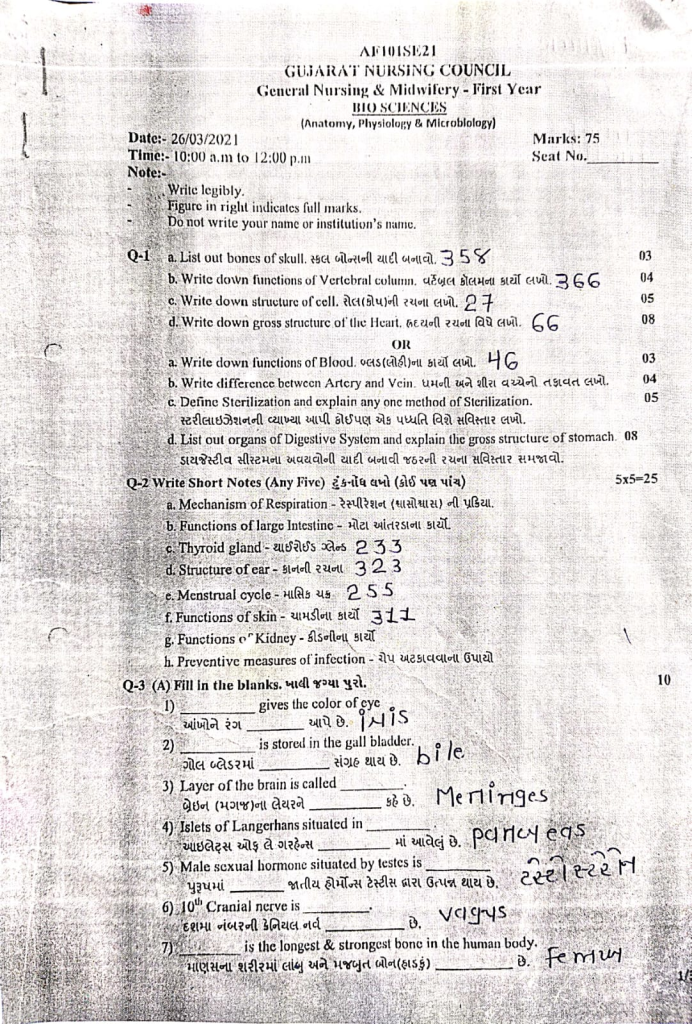 AF101SE21
GUJARAT NURSING COUNCIL
General Nursing & Midwifery - First Year
BIO SCIENCES
(Anatomy, Physiology & Microbiology)
Date:- 26/03/2021 Marks: 75
Time:- 10:00 a.m to 12:00 p.m Seat No.________
Note:-
- Write legibly.
- Figure in right indicates full marks.
- Do not write your name or institution's name.
Q-1 a. List out bones of skull. સ્કલ બોન્સની યાદી બનાવો. 358 03
b. Write down functions of Vertebral column. વર્ટેબ્રલ કોલમના કાર્યો લખો. 366 04
c. Write down structure of cell. સેલ(કોષ)ની રચના લખો. 27 05
d. Write down gross structure of the Heart. હ્રદયની રચના વિષે લખો. 66 08
OR
a. Write down functions of Blood. બ્લડ(લોહી)ના કાર્ય લખો. 46 03
b. Write difference between Artery and Vein. ધમની અને શીરા વચ્ચેનો તફાવત લખો. 04
c. Define Sterilization and explain any one method of Sterilization. 05
સ્ટરીલાઇઝેશનની વ્યાખ્યા આપી કોઈપણ એક પધ્ધતિ વિશે સવિસ્તાર લખો.
d. List out organs of Digestive System and explain the gross structure of stomach. 08
ડાયજેસ્ટીવ સીસ્ટમના અવયવોની યાદી બનાવી જઠરની રચના સવિસ્તાર સમજાવો.
Q-2 Write Short Notes (Any Five) ટુંકનોંધ લખો (કોઈ પણ પાંચ) 5x5=25
a. Mechanism of Respiration - રેસ્પીરેશન (શ્વાસોશ્વાસ) ની પ્રક્રિયા.
b. Functions of large Intestine - મોટા આંતરડાના કાર્યો
c. Thyroid gland - થાઈરોઈડ ગ્લેન્ડ 233
d. Structure of ear - કાનની રચના 323
e. Menstrual cycle - માસિક ચક્ર 255
f. Functions of skin - ચામડીના કાર્યો 311
g. Functions of Kidney - કીડનીના કાર્યો
h. Preventive measures of infection - ચેપ અટકાવવાના ઉપાયો
Q-3 (A) Fill in the blanks. ખાલી જગ્યા પુરો. 10
1) ________ gives the color of eye
આંખોને રંગ ________ આપે છે. iris
2) ________ is stored in the gall bladder.
ગોલ બ્લેડરમાં ________ સંગ્રહ થાય છે. bile
3) Layer of the brain is called ________.
બ્રેઇન (મગજ)ના લેયરને ________ કહે છે. Meninges
4) Islets of Langerhans situated in ________.
આઇલેટ્સ ઓફ લે ગરહેન્સ ________ માં આવેલું છે. pancreas
5) Male sexual hormone situated by testes is ________
પુરૂષમાં ________ જાતીય હોર્મોન્સ ટેસ્ટીસ દ્વારા ઉત્પન્ન થાય છે. ટેસ્ટોસ્ટેરોન
6) 10th Cranial nerve is ________.
દશમા નંબરની ક્રેનિયલ નર્વ ________ છે. vagus
7) ________ is the longest & strongest bone in the human body.
માણસના શરીરમાં લાંબુ અને મજબુત બોન(હાડકું) ________ છે. Femur